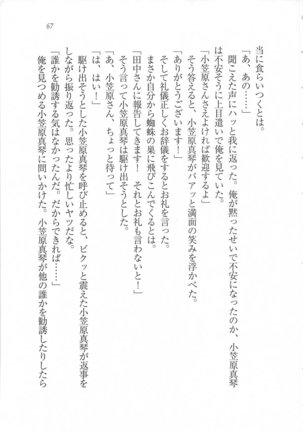 67
当に食らいつくとは。
「あ、あの……」
聞こえた声にハッと我に返った。俺が黙ったせいで不安になったのか、小笠原真琴
は不安そうに上目遣いで俺を見ていた。
「小笠原さんさえよければ歓迎するよ」
そう答えると、小笠原真琴がパアッと満面の笑みを浮かべた。
「ありがとうございます！」
そして礼儀正しくお辞儀をするとお礼を言った。
まさか自分から蜘蛛の巣に飛びこんでくるとは。
「田中さんに報告してきます！　それとお礼も言わないと！」
そう言って小笠原真琴は駆け出そうとした。
「あ、小笠原さん、ちょっと待って」
「は、はい！」
駆け出そうとした小笠原真琴を呼び止めると、ビクッと震えた小笠原真琴が返事を
しながら振り返った。思ったより忙しいヤツだな。
「誰かを勧誘する気はなかったんだ。だからできれば……」
俺を見つめる小笠原真琴に問いかけた。小笠原真琴が他の誰かを勧誘したりしたら